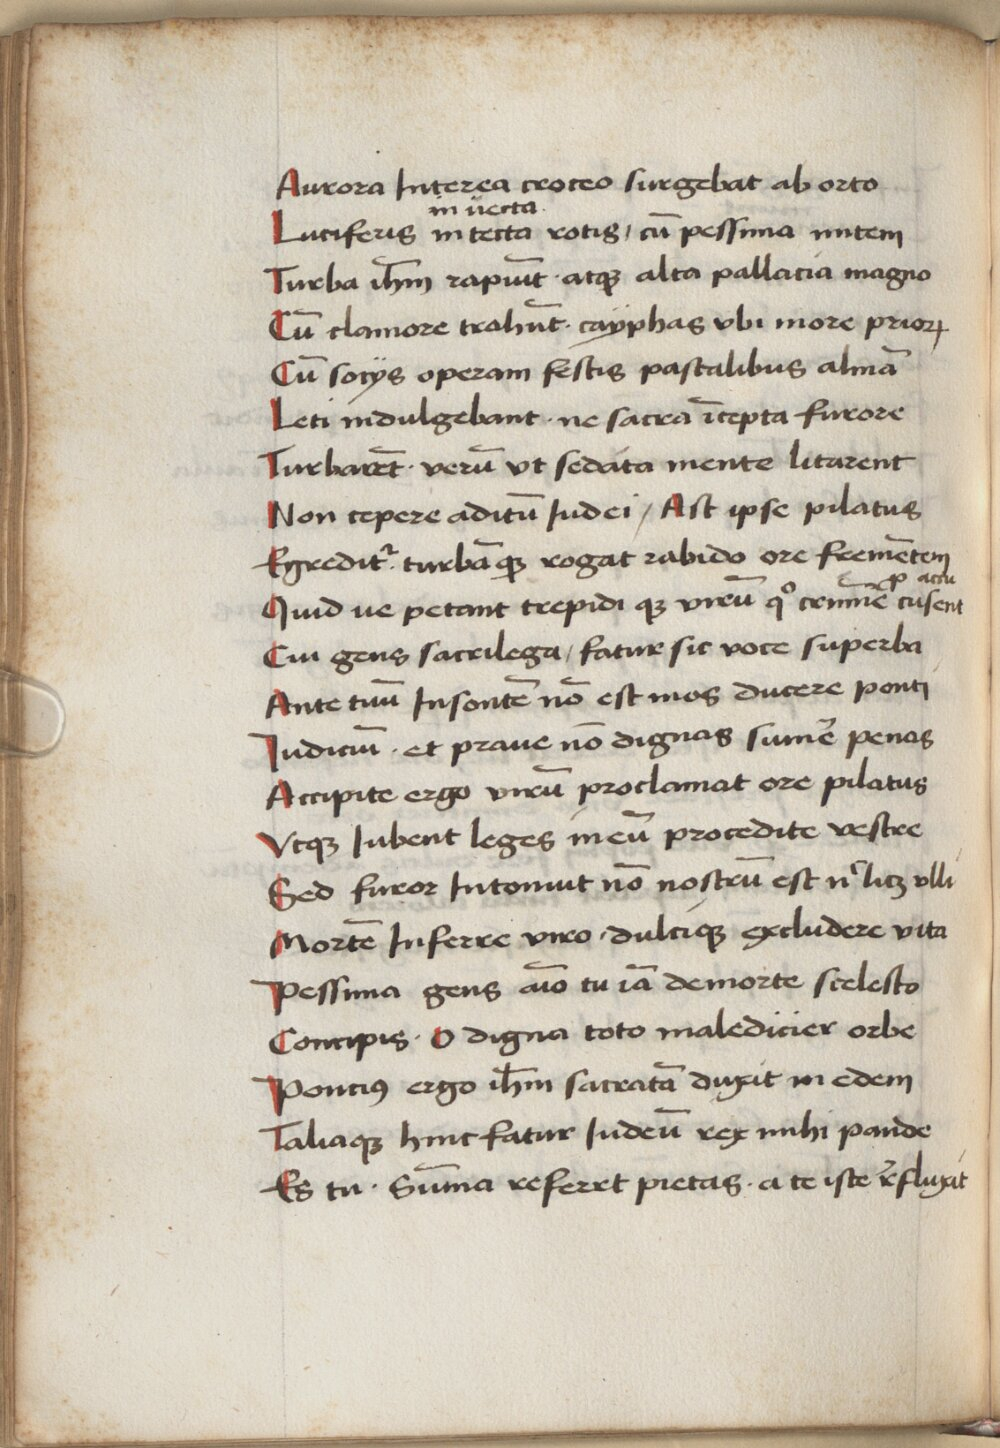 Aurora Interea croceo surgebat ab orto
in uecta
Luciferis in tecta rotis / cū pessima mitem
Turba ihm̄ rapiūt · atqȝ alta pallacia magno
Cū clamore trahūt · cayphas vbi more prioꝝ
Cū socijs operam festis pascalibus almā
Leti indulgebant · ne sacra īcepta furore
Turbarēt · verū vt sedata mente litarent
Non cepere aditū Iudei / Ast ipse pilatus
Egredit᷑ · turbāqȝ rogat rabido ore fremētem
accu
Quid ue petant trepidi qȝ virū qͦ crimīe cusent
Cui gens sacrilega / fatur sic voce superba
Ante tuū Insontē nō est mos ducere ponti
Iudiciū · et praue nō dignas sumē penas
Accipite ergo virū proclamat ore pilatus
Vtqȝ Iubent leges in eū procedite vestre
Sed furor Intonuit nō nostrū est nͥ licȝ vlli
Mortē Inferre viro · dulciqȝ excludere vita
Pessima gens aīo tu iā de morte scelesto
Concipis · O digna toto maledicier orbe
Ponciꝰ ergo ihm̄ sacratā duxit in edem
Taliaqȝ hinc fatur Iudeū rex mihi pande
Es tu · Sūma referet pietas · a te iste r̄fluxit